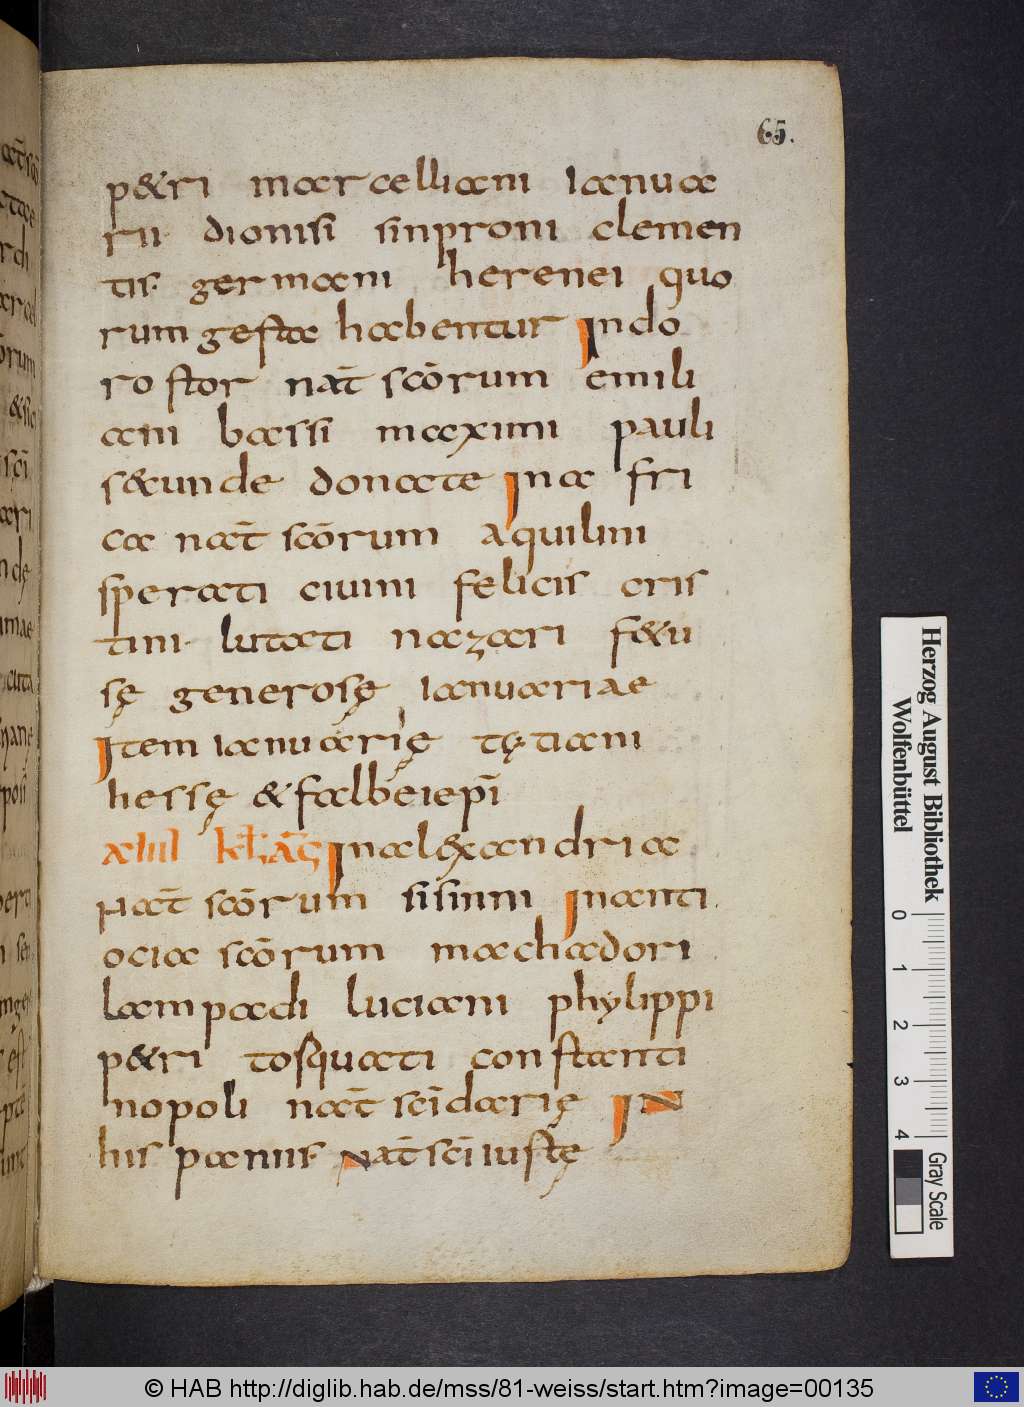 65.
p&ri marcelliani ianua
rii· dionisi sinproni clemen
tis· germani herenei quo
rum gesta habentur Indo
rostor nat̄ scōrum emili
ani bassi maximi pauli
s&cunde donate Ina fri
ca nat̄ scōrum aquilini
sperati ciuini felicis cris
tini· lutati nazari f&u
sę generosę ianuariae
Item ianuarię tętiani
hessę &falbei epī
XVII kł aḡ Inalęxandria
Nat̄ scōrum sisinni Inanti
ocia scōrum machadori
lampadi luciani phylippi
p&ri tosquati constanti
nopoli nat̄ scī darię IN
his paniis· Nat̄ scī iustę
Herzog August Bibliothek
Wolfenbüttel
0 1 2 3 4
Gray Scale
© HAB http://diglib.hab.de/mss/81-weiss/start.htm?image=00135